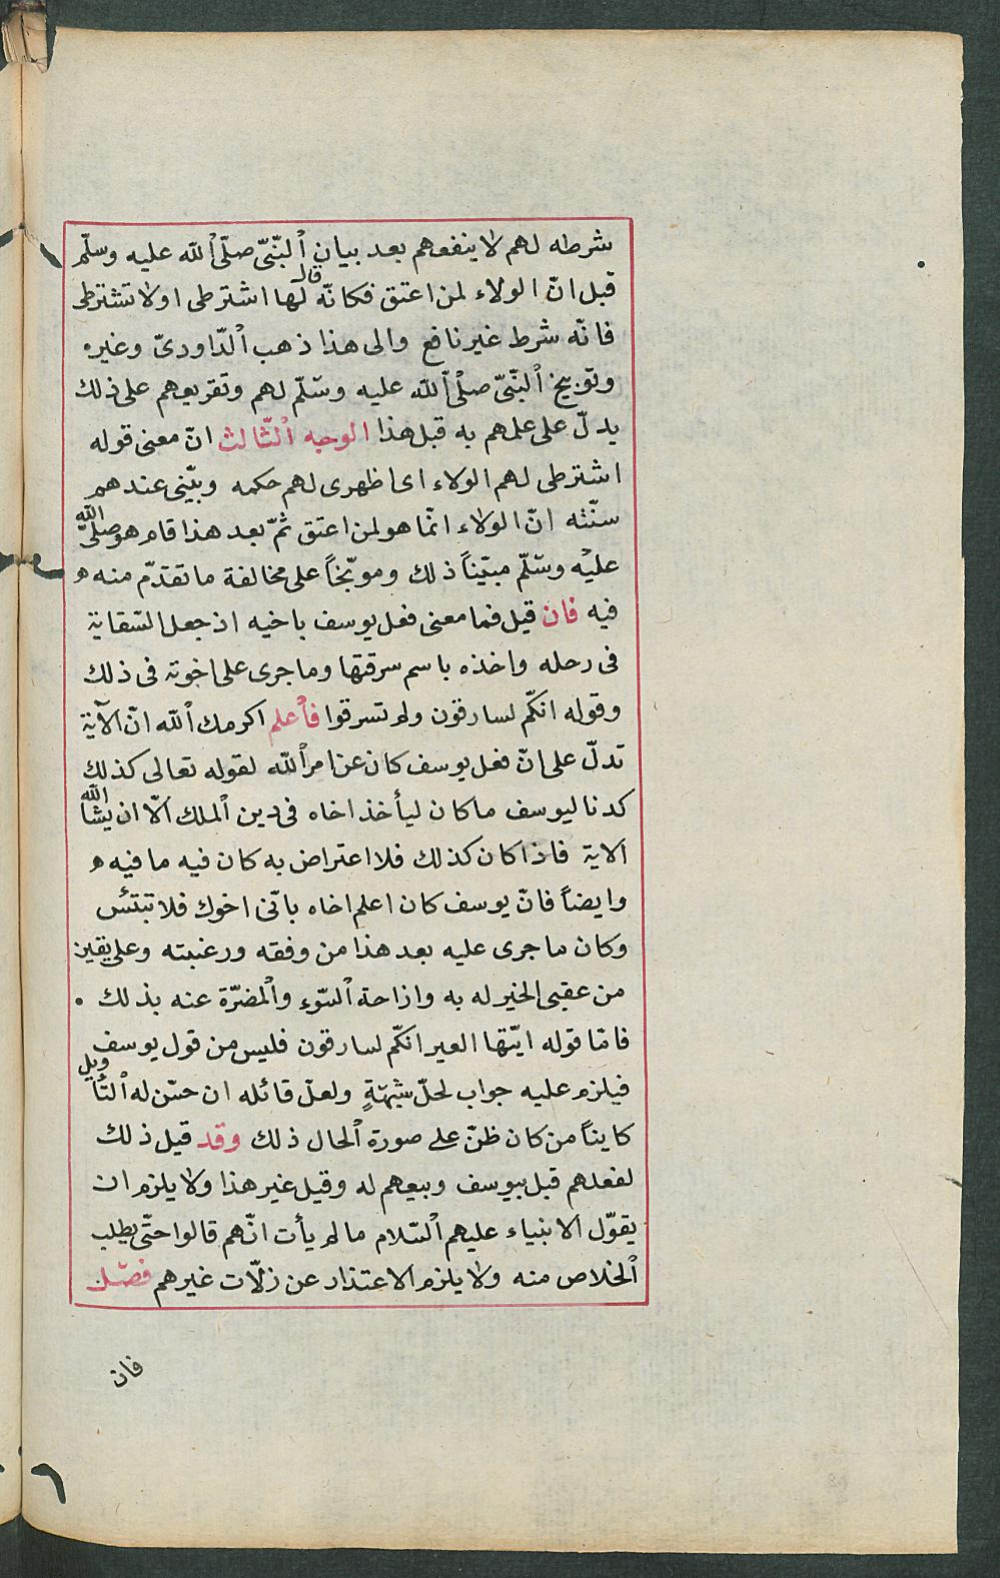 شرطه لهم لا ينفعهم بعد بيان النّبىّ صلّى الله عليه وسلّم
قبل انّ الولاء لمن اعتق فكانّه قال لها اشترطى اولا تشترطى
فانّه شرط غير نافع والى هذا ذهب الدّاودىّ وغيره
وتوبيخ النّبىّ صلّى الله عليه وسّلّم لهم وتقريعهم على ذلك
يدلّ على علمهم به قبل هذا الوجه الثّالث انّ معنى قوله
اشترطى لهم الولاء اى اظهرى لهم حكمه وبيّنى عندهم
سنّته انّ الولاء انّما هو لمن اعتق ثمّ بعد هذا قام هو صلّى الله
عليه وسّلّم مبيّناً ذلك وموبّخاً على مخالفة ما تقدّم منه ه
فيه فان قيل فما معنى فعل يوسف باخيه اذ جعل السّقاية
فى رحله واخذه باسم سرقتها وما جرى على اخوته فى ذلك
وقوله انكّم لسارقون ولم تسرقوا فأعلم اكرمك الله انّ الآية
تدلّ على انّ فعل يوسف كان عن امر الله لقوله تعالى كذلك
كدنا ليوسف ما كان ليأخذ اخاه فى دين الملك الّا ان يشا الله
الاية فاذا كان كذلك فلا اعتراض به كان فيه ما فيه ه
وايضاً فانّ يوسف كان اعلم اخاه بانّى اخوك فلا تبتئس
وكان ما جرى عليه بعد هذا من وفقه ورغبته وعلى يقين
من عقبى الخير له به وازاحة السّوء والمضرّة عنه بذلك .
فامّا قوله ايّتها العير انكّم لسارقون فليس من قول يوسف
فيلزم عليه جواب لحلّ شبهةٍ ولعلّ قائله ان حسّن له التّأويل
كايناً من كان ظنّ على صورة الحال ذلك وقد قيل ذلك
لفعلهم قبل بيوسف وبيعهم له وقيل غير هذا ولا يلزم ان
يقوّل الانبياء عليهم السّلام ما لم يأت انّهم قالوا حتّى يطلب
الخلاص منه ولا يلزم الاعتذار عن زلّات غيرهم فصّل
فان